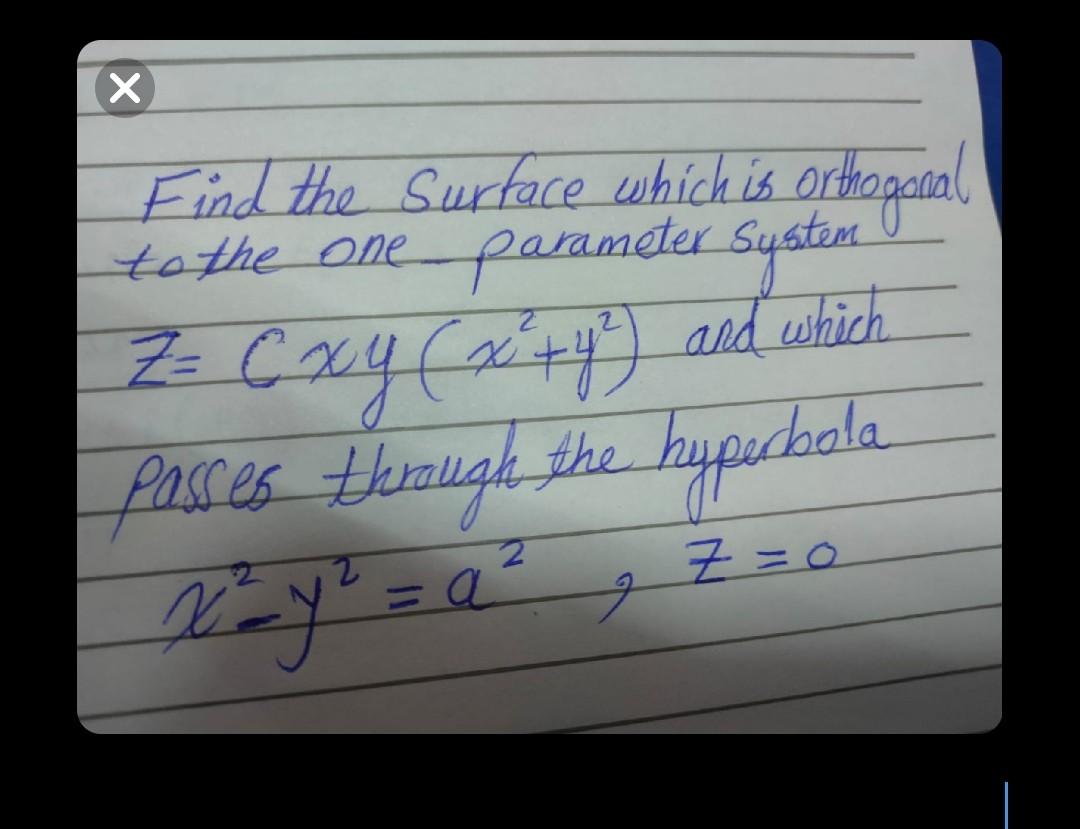 Find the Surface which is orthogonal
to the one - parameter system
Z = C xy ( x² + y² ) and which
passes through the hyperbola
x² - y² = a² , Z = 0